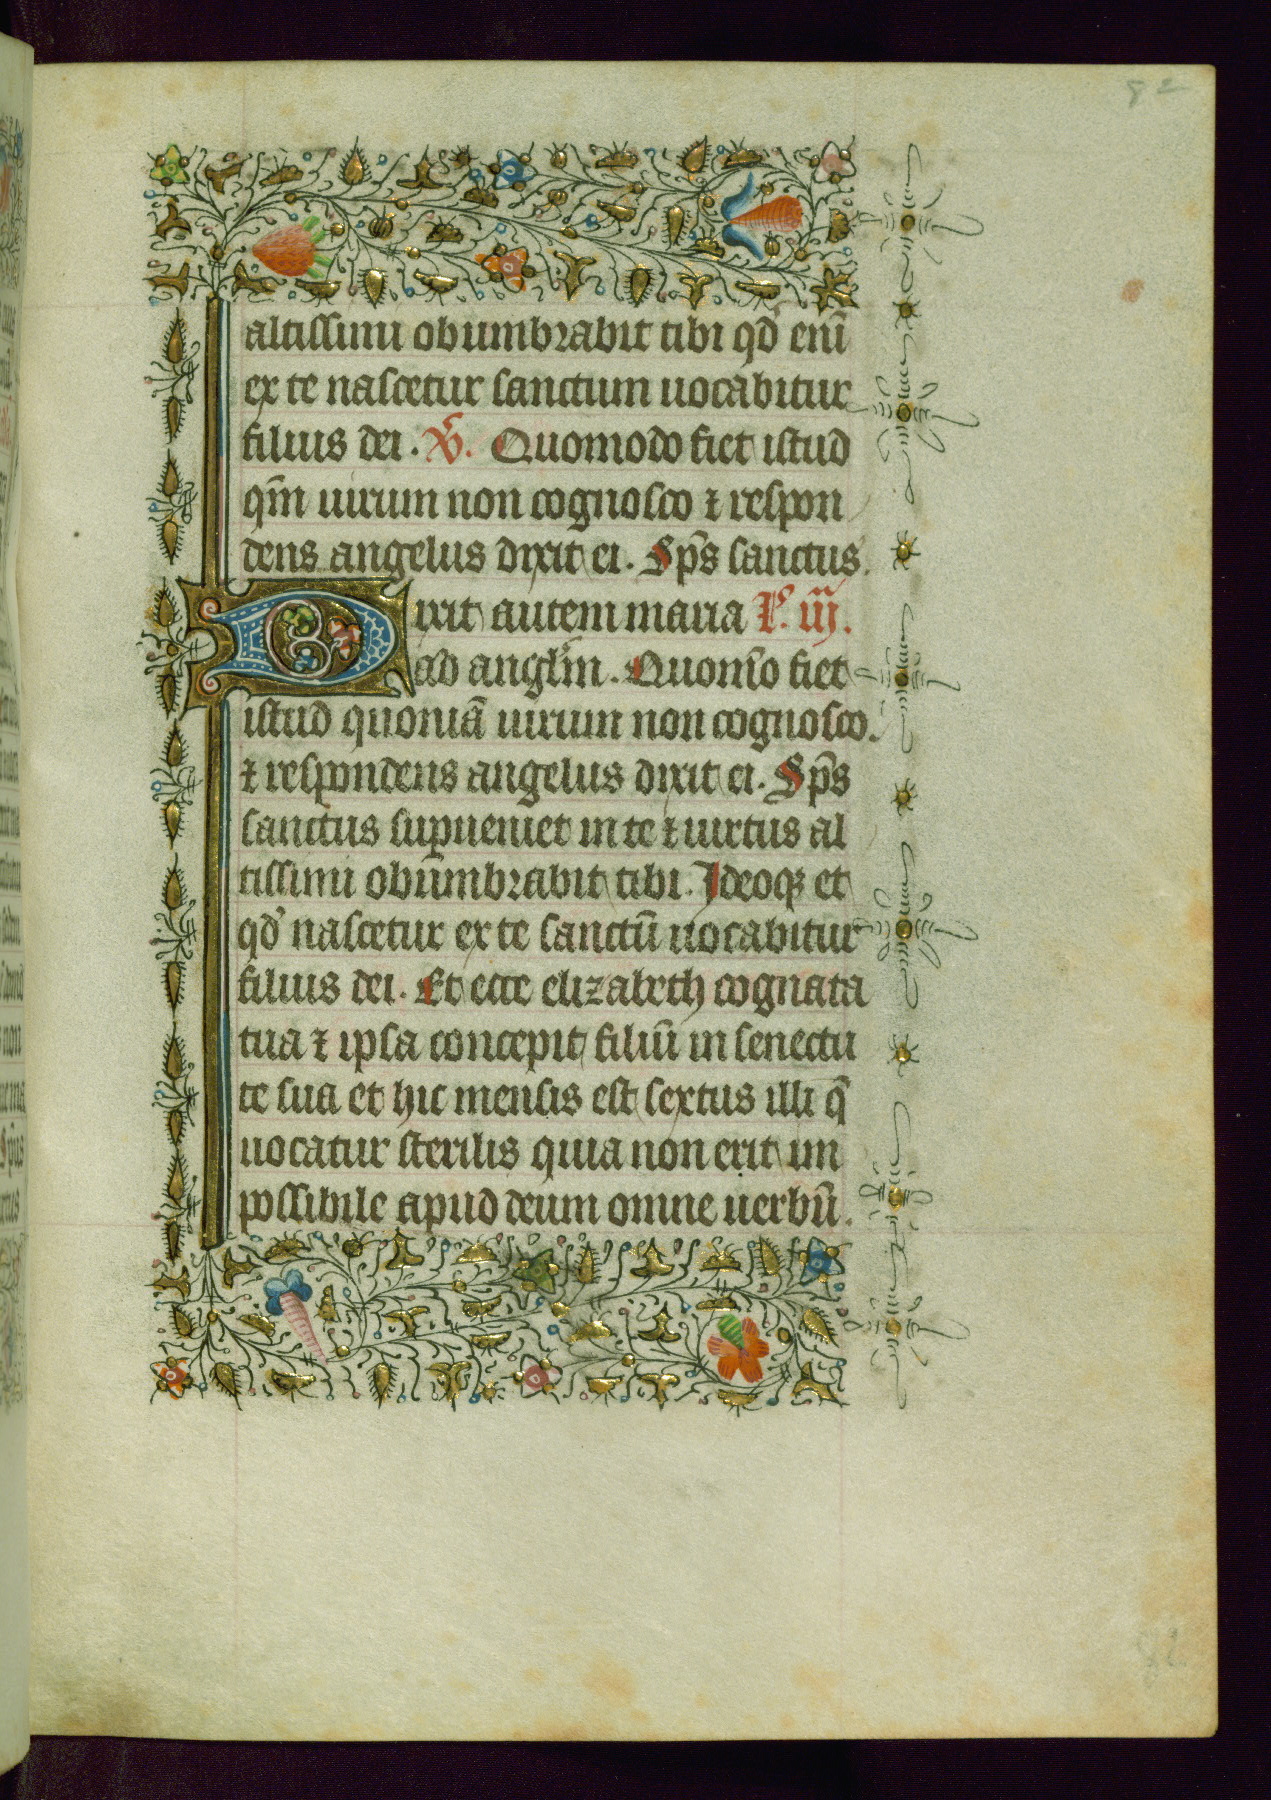 altissimi obumbrabit tibi qd' eni̅
ex te nascetur sanctum uocabitur
filius dei. V̅. Quomodo fiet istud
qm̅ uirum non cognosco ⁊ respon
dens angelus dixit ei. Sp̅s sanctus
Dixit autem maria L̊. iij.
ad angl̅m. Quom̊o fiet
istud quonia̅ uirum non cognosco.
⁊ respondens angelus dixit ei. Sp̅s
sanctus supueniet in te ⁊ uirtus al
tissimi obumbrabit tibi. Ideoqꝫ et
qd' nascetur ex te sanctu̅ uocabitur
filius dei. Et ecce elizabeth cognata
tua ⁊ ipsa concepit filiu̅ in senectu
te sua et hic mensis est sextus illi q̅
uocatur sterilis quia non erit im
possibile apud deum omne uerbu̅.
82